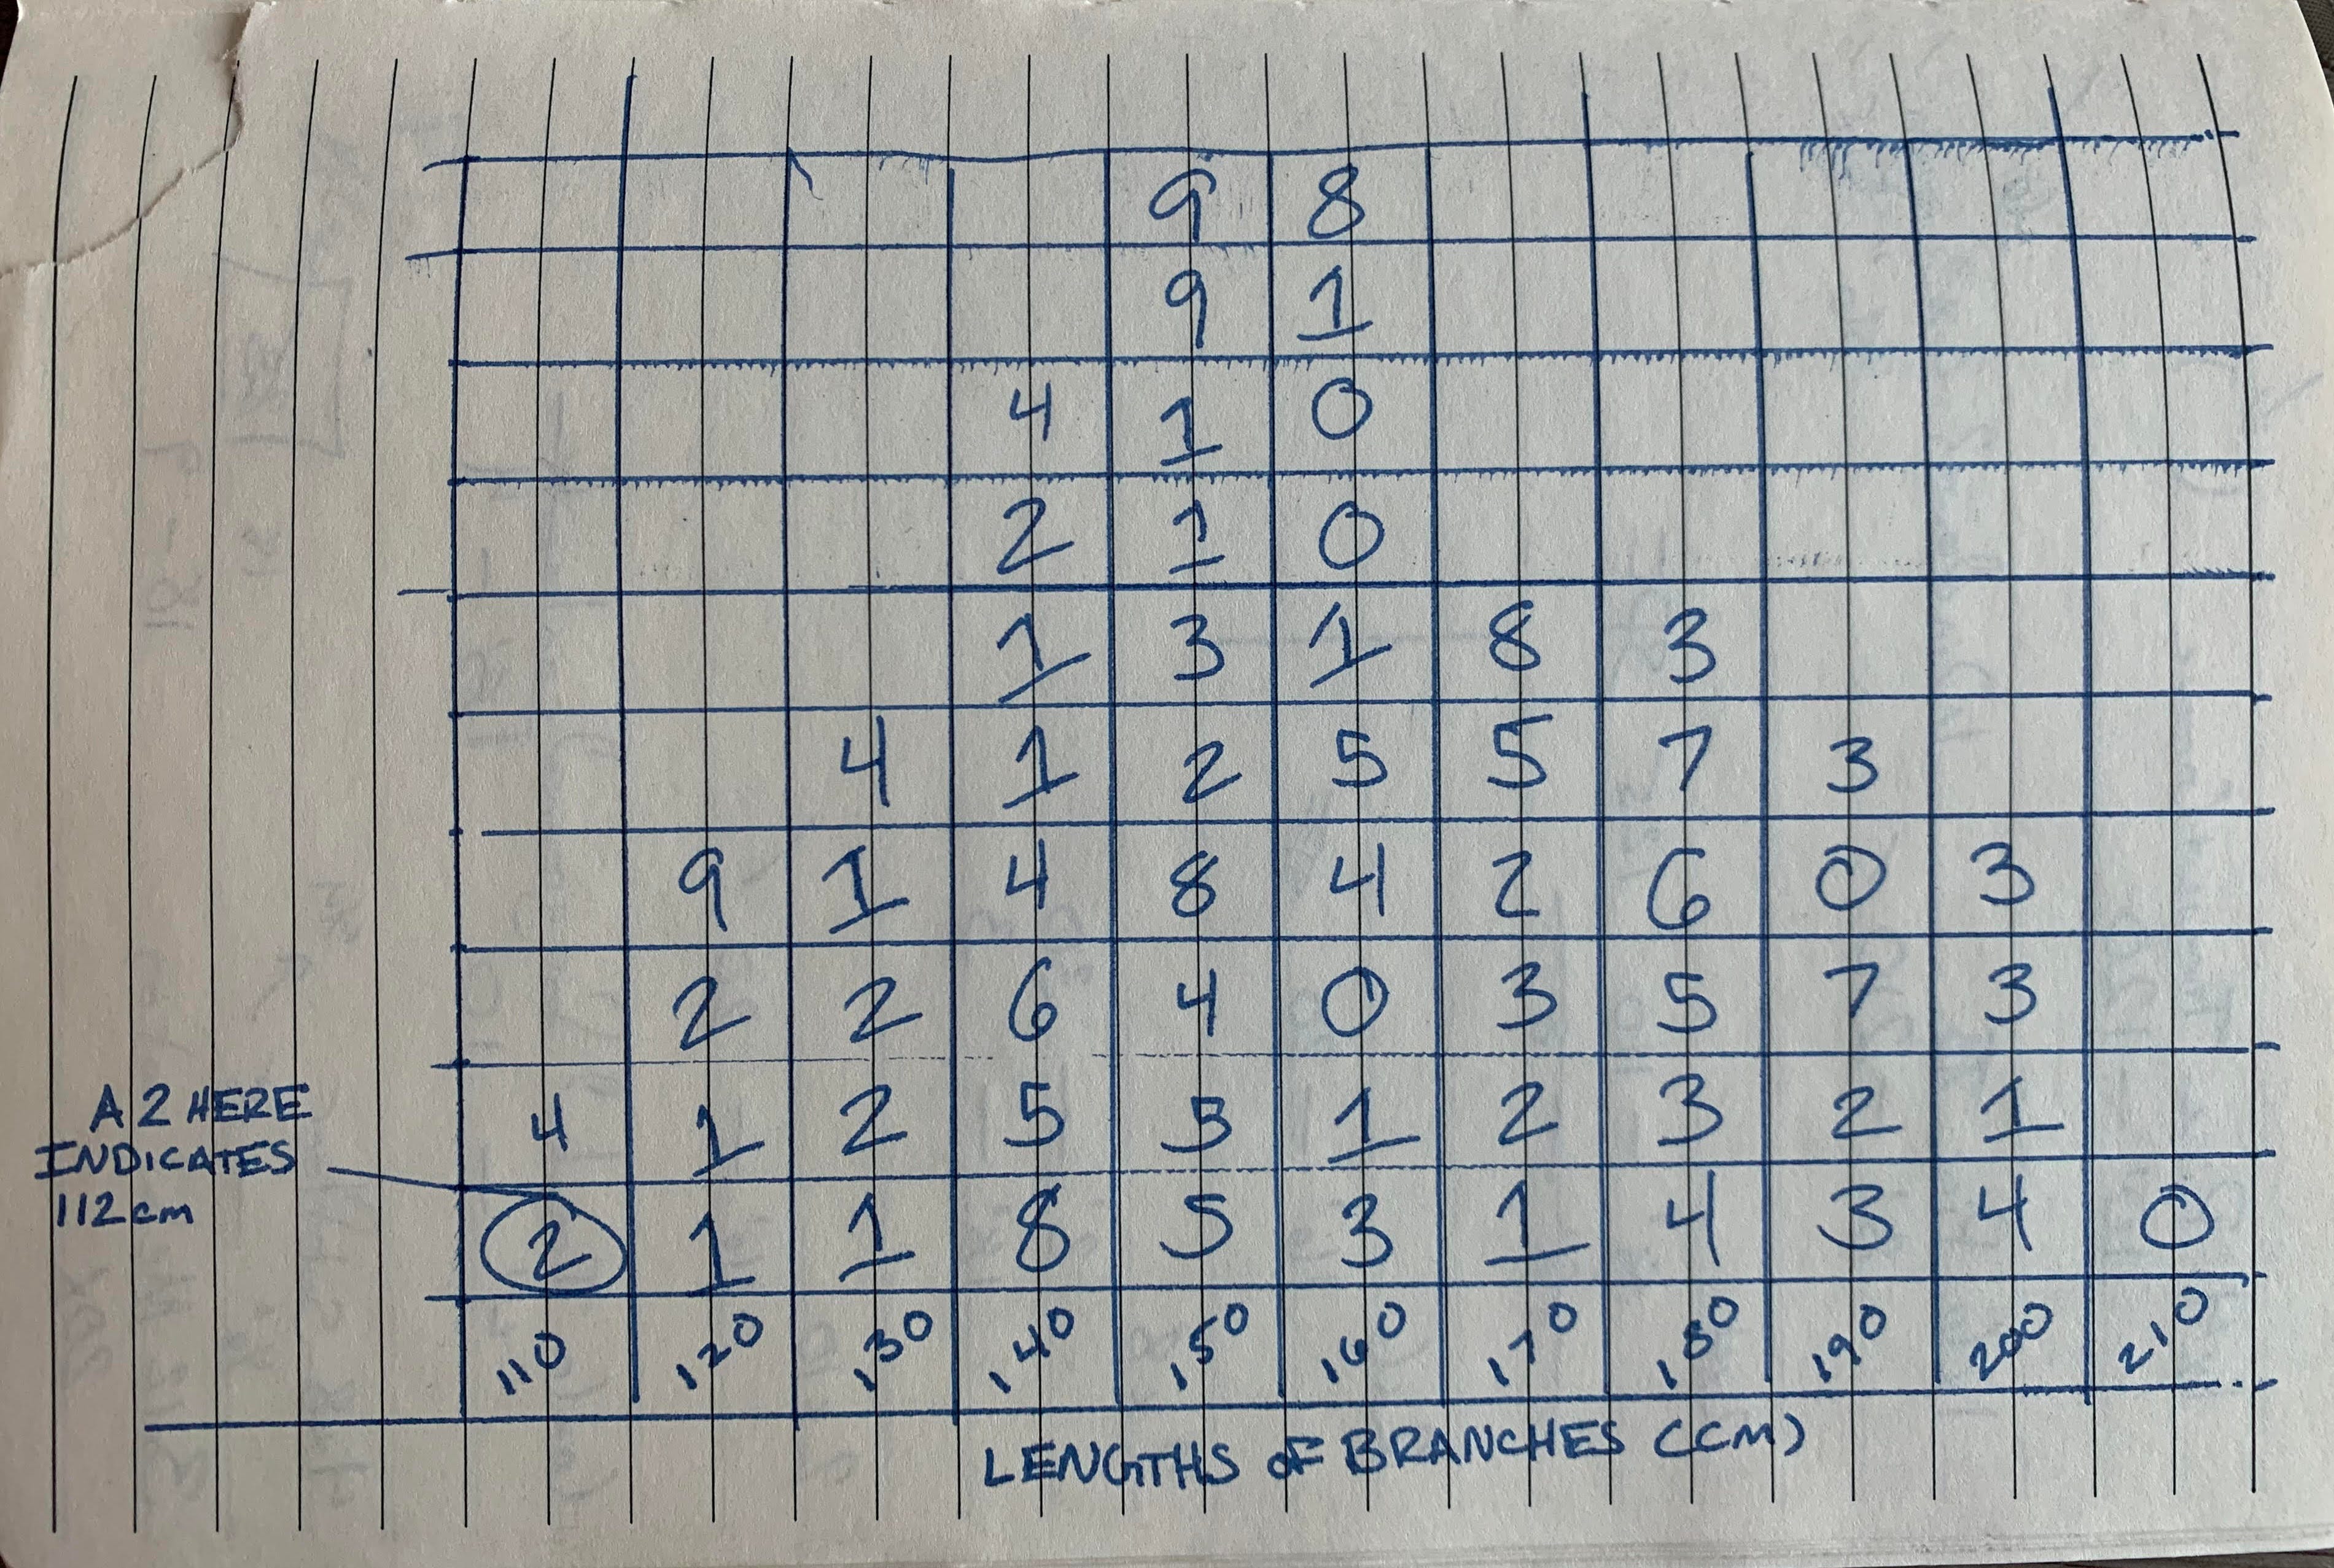 9 8
9 1
4 1 0
2 1 0
1 3 1 8 3
4 1 2 5 5 7 3
9 1 4 8 4 2 6 0 3
2 2 6 4 0 3 5 7 3
4 1 2 5 3 1 2 3 2 1
2 1 1 8 5 3 1 4 3 4 0
110 120 130 140 150 160 170 180 190 200 210
A 2 HERE
INDICATES
112cm
LENGTHS OF BRANCHES (CM)